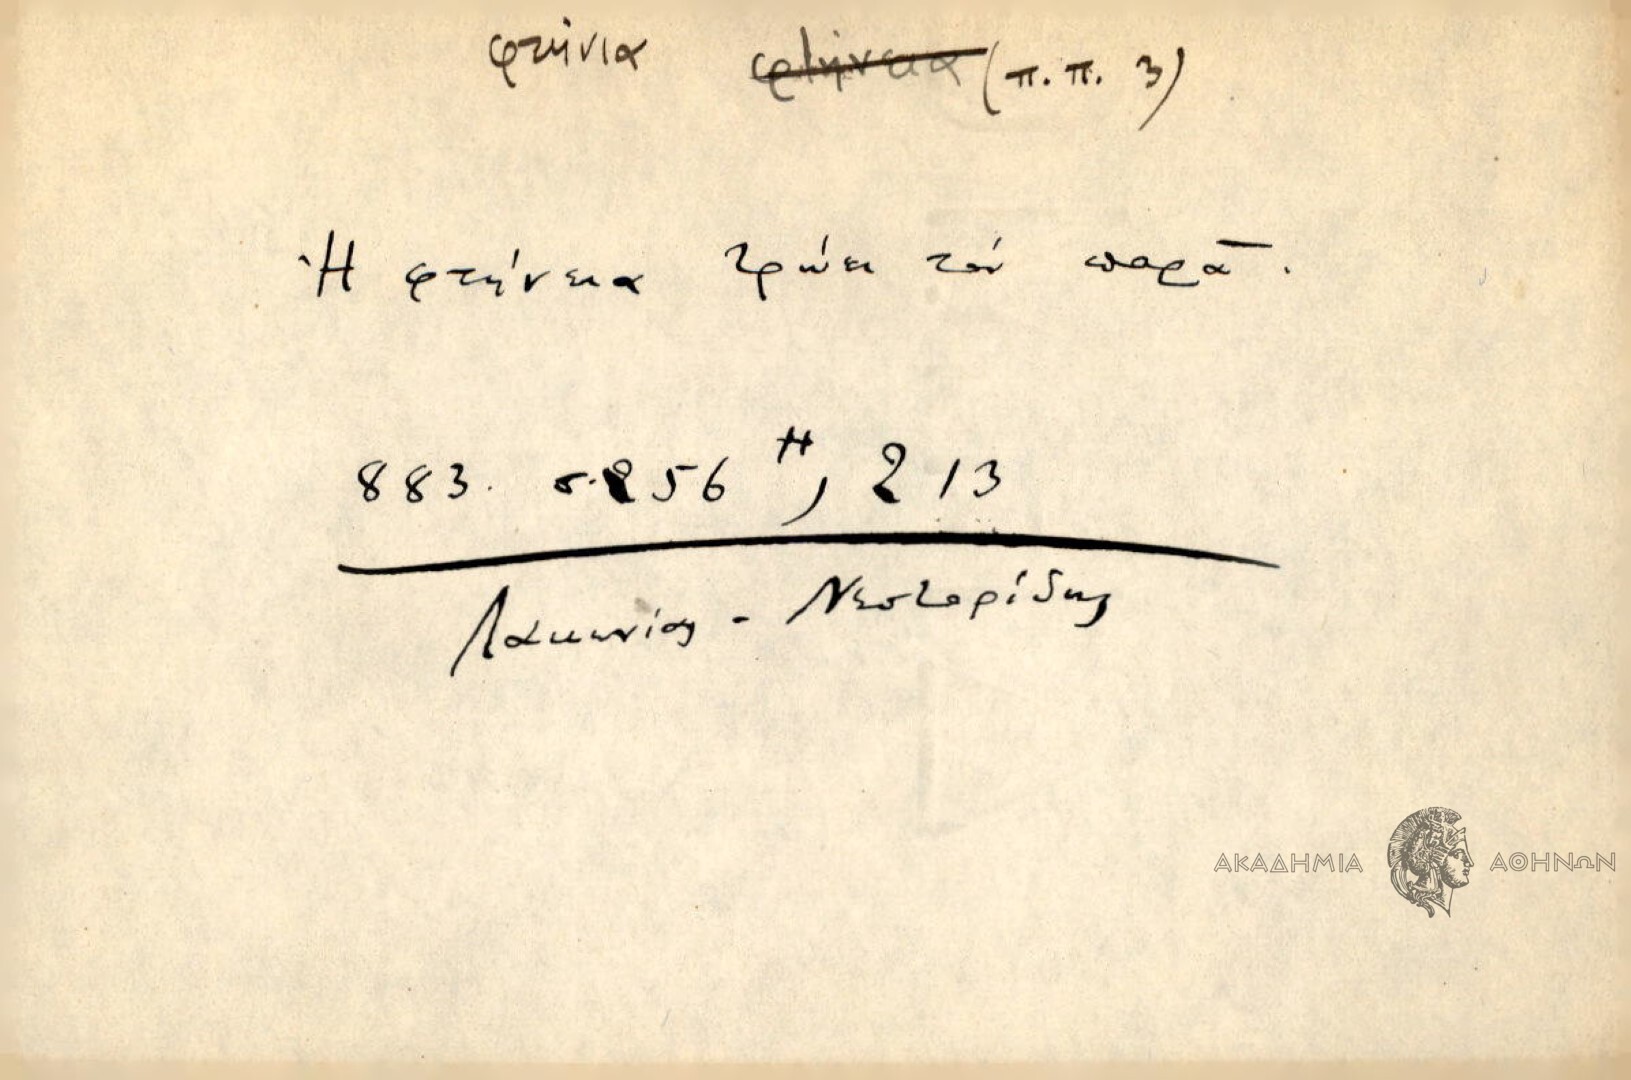 φτήνια φτήνεια (π.π. 3)
Ἡ φτήνεια τρώει τόν παρᾶ.
883. σ. 256 Η, 213
Λακωνίας - Νεστορίδης
ΑΚΑΔΗΜΙΑ ΑΘΗΝΩΝ